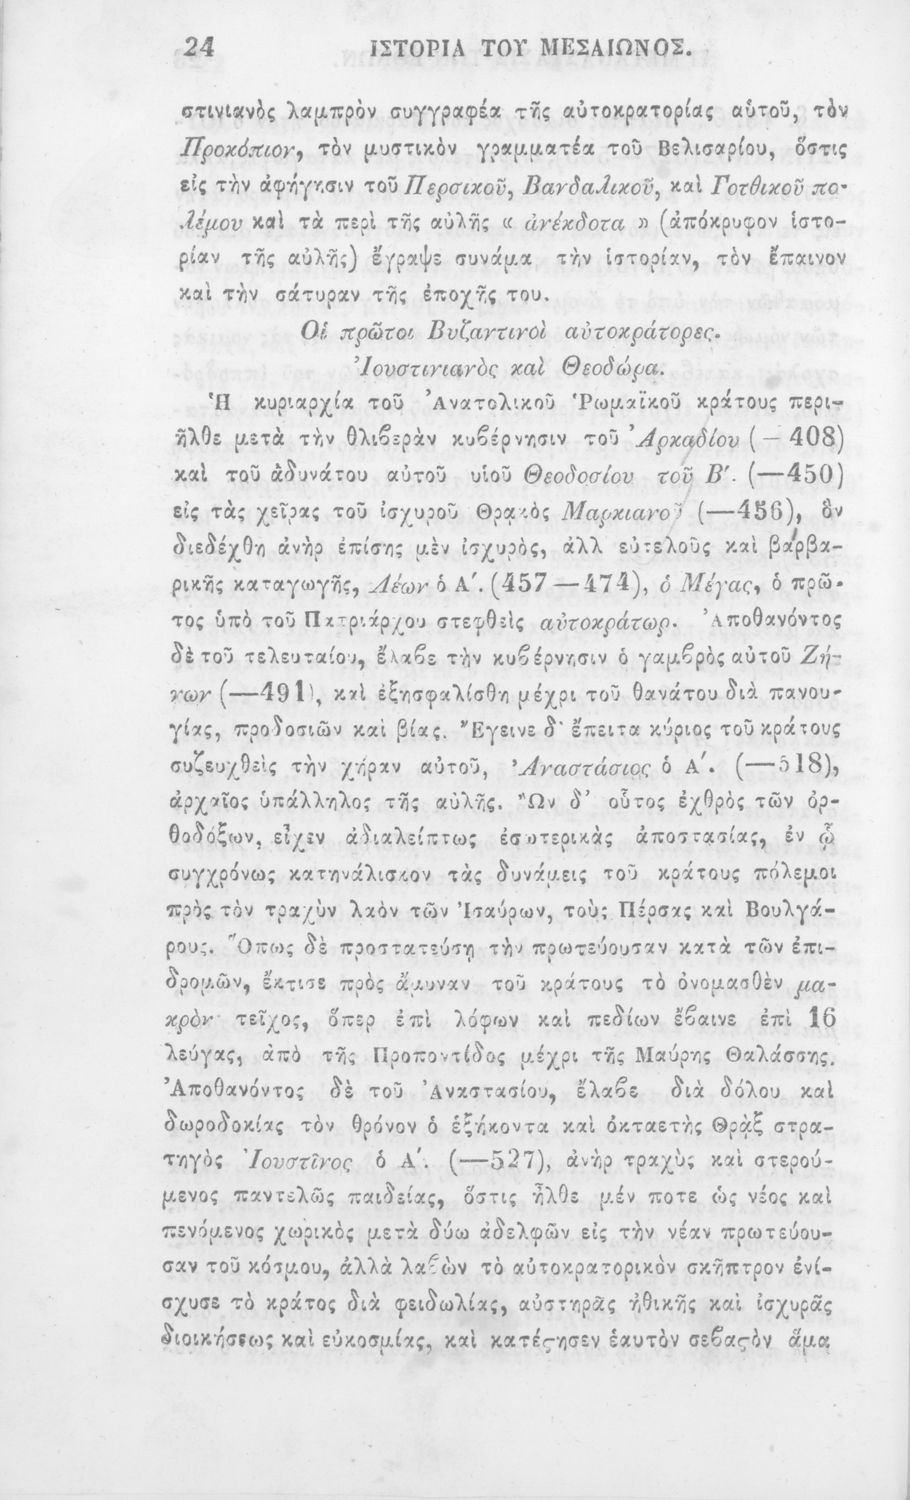 24 ΙΣΤΟΡΙΑ ΤΟΥ ΜΕΣΑΙΩΝΟΣ.
στινιανὸς λαμπρὸν συγγραφέα τῆς αὐτοκρατορίας αὑτοῦ, τὸν
Προκόπιον, τὸν μυστικὸν γραμματέα τοῦ Βελισαρίου, ὅστις
εἰς τὴν ἀφήγησιν τοῦ Περσικοῦ, Βανδαλικοῦ, καὶ Γοτθικοῦ πο-
λέμου καὶ τὰ περὶ τῆς αὐλῆς « ἀνέκδοτα » (ἀπόκρυφον ἱστο-
ρίαν τῆς αὐλῆς) ἔγραψε συνάμα τὴν ἱστορίαν, τὸν ἔπαινον
καὶ τὴν σάτυραν τῆς ἐποχῆς του.
Οἱ πρῶτοι Βυζαντινοὶ αὐτοκράτορες.
Ἰουστινιανὸς καὶ Θεοδώρα.
Ἡ κυριαρχία τοῦ Ἀνατολικοῦ Ῥωμαϊκοῦ κράτους περι-
ῆλθε μετὰ τὴν θλιβερὰν κυβέρνησιν τοῦ Ἀρκαδίου (— 408)
καὶ τοῦ ἀδυνάτου αὐτοῦ υἱοῦ Θεοδοσίου τοῦ Β΄. (—450)
εἰς τὰς χεῖρας τοῦ ἰσχυροῦ Θρᾳκὸς Μαρκιανοῦ (—456), ὃν
διεδέχθη ἀνὴρ ἐπίσης μὲν ἰσχυρὸς, ἀλλ εὐτελοῦς καὶ βαρβα-
ρικῆς καταγωγῆς, Λέων ὁ Α΄. (457—474), ὁ Μέγας, ὁ πρῶ-
τος ὑπὸ τοῦ Πατριάρχου στεφθεὶς αὐτοκράτωρ. Ἀποθανόντος
δὲ τοῦ τελευταίου, ἔλαβε τὴν κυβέρνησιν ὁ γαμβρὸς αὐτοῦ Ζή-
νων (—491), καὶ ἐξησφαλίσθη μέχρι τοῦ θανάτου διὰ πανου-
γίας, προδοσιῶν καὶ βίας. Ἔγεινε δ' ἔπειτα κύριος τοῦ κράτους
συζευχθεὶς τὴν χήραν αὐτοῦ, Ἀναστάσιος ὁ Α΄. (—518),
ἀρχαῖος ὑπάλληλος τῆς αὐλῆς. Ὢν δ' οὗτος ἐχθρὸς τῶν ὀρ-
θοδόξων, εἶχεν ἀδιαλείπτως ἐσωτερικὰς ἀποστασίας, ἐν ᾧ
συγχρόνως κατηνάλισκον τὰς δυνάμεις τοῦ κράτους πόλεμοι
πρὸς τὸν τραχὺν λαὸν τῶν Ἰσαύρων, τοὺς Πέρσας καὶ Βουλγά-
ρους. Ὅπως δὲ προστατεύσῃ τὴν πρωτεύουσαν κατὰ τῶν ἐπι-
δρομῶν, ἔκτισε πρὸς ἄμυναν τοῦ κράτους τὸ ὀνομασθὲν μα-
κρὸν τεῖχος, ὅπερ ἐπὶ λόφων καὶ πεδίων ἔβαινε ἐπὶ 16
λεύγας, ἀπὸ τῆς Προποντίδος μέχρι τῆς Μαύρης Θαλάσσης.
Ἀποθανόντος δὲ τοῦ Ἀναστασίου, ἔλαβε διὰ δόλου καὶ
δωροδοκίας τὸν θρόνον ὁ ἑξήκοντα καὶ ὀκταετὴς Θρᾲξ στρα-
τηγὸς Ἰουστῖνος ὁ Α΄. (—527), ἀνὴρ τραχὺς καὶ στερού-
μενος παντελῶς παιδείας, ὅστις ἦλθε μέν ποτε ὡς νέος καὶ
πενόμενος χωρικὸς μετὰ δύω ἀδελφῶν εἰς τὴν νέαν πρωτεύου-
σαν τοῦ κόσμου, ἀλλὰ λαβὼν τὸ αὐτοκρατορικὸν σκῆπτρον ἐνί-
σχυσε τὸ κράτος διὰ φειδωλίας, αὐστηρᾶς ἠθικῆς καὶ ἰσχυρᾶς
διοικήσεως καὶ εὐκοσμίας, καὶ κατέϛησεν ἑαυτὸν σεβαϛὸν ἅμα